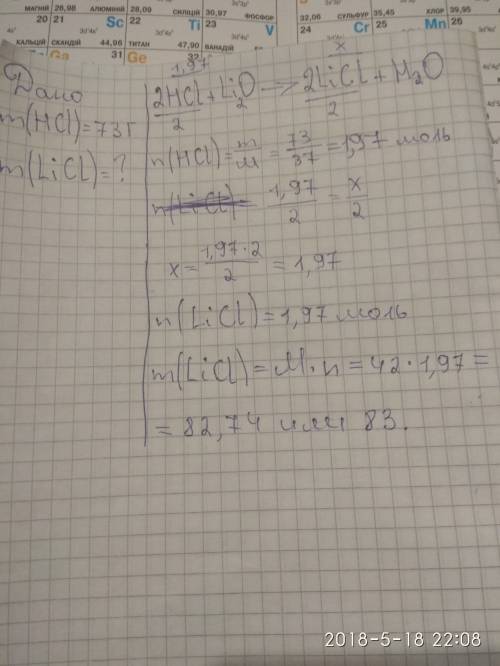 МАГНІЙ 26,98 АЛЮМІНІЙ 28,09 СИЛІЦІЙ 30,97 ФОСФОР 32,06 СУЛЬФУР 35,45 ХЛОР 39,95
20 21 Sc 22 Ti 23 V 24 Cr 25 Mn 26
КАЛЬЦІЙ СКАНДІЙ 44,96 ТИТАН 47,90 ВАНАДІЙ
Ga 31 Ge 32
Дано
m(HCl)=73г
m(LiCl)=?
1,97 x
2HCl+Li2O -> 2LiCl+H2O
2 2
n(HCl)=m/M=73/37=1,97 моль
n(LiCl)= 1,97/2=x/2
x=1,97·2/2=1,97
n(LiCl)=1,97 моль
m(LiCl)=M·n=42·1,97=
=82,74 или 83.
2018-5-18 22:08